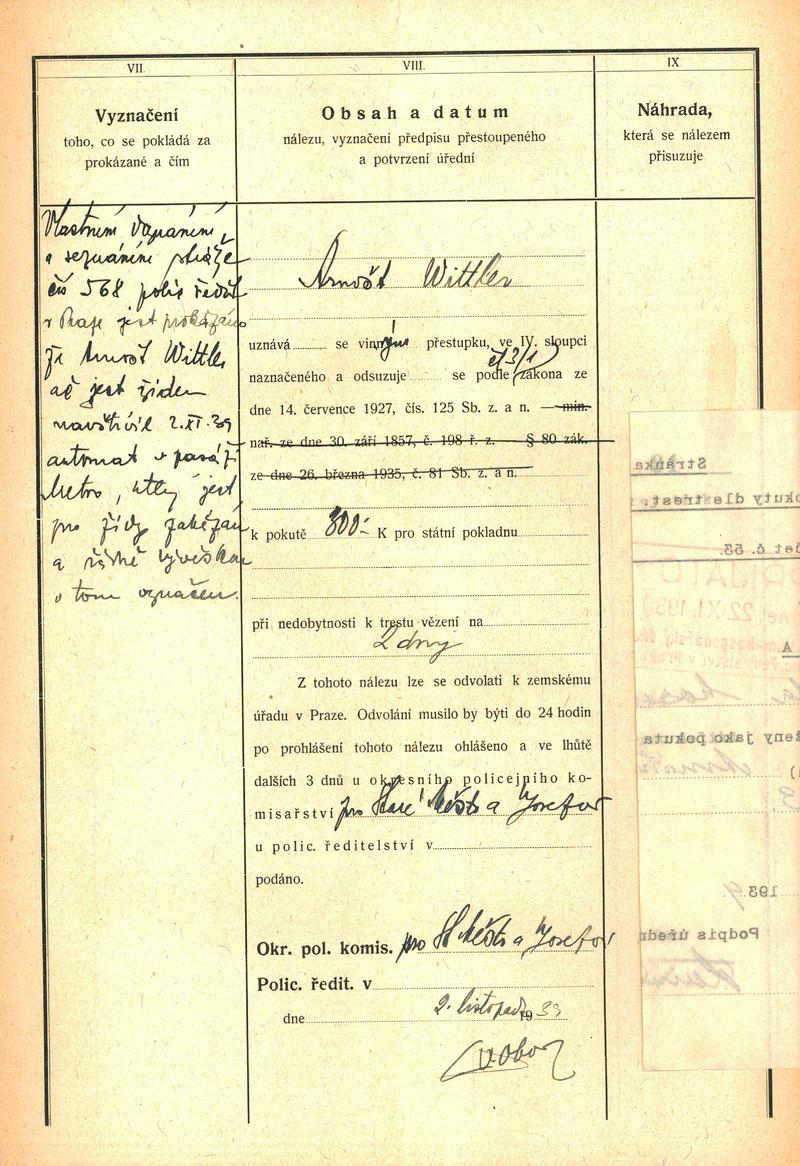 VII.
Vyznačení
toho, co se pokládá za
prokázané a čím
Vlastním doznáním
a seznáním stráže
čís 568 polic. ředit.
v Praze jest prokázáno
že Arnošt Wittler
ač jest židem
navštívil 2.XI.39
automat v pasáži
Metro, který jest
pro židy zakázán
a řádně vývěskou
o tom označen.
VIII.
Obsah a datum
nálezu, vyznačení předpisu přestoupeného
a potvrzení úřední
Arnošt Wittler
uznává se vinným přestupku, ve IV. sloupci
čl 3/1
naznačeného a odsuzuje se podle zákona ze
dne 14. července 1927, čís. 125 Sb. z. a n. — min.
nař. ze dne 30. září 1857, č. 198 ř. z. — § 80 zák.
ze dne 26. března 1935, č. 81 Sb. z. a n.
k pokutě 300.- K pro státní pokladnu
při nedobytnosti k trestu vězení na
2 dny
Z tohoto nálezu lze se odvolati k zemskému
úřadu v Praze. Odvolání musilo by býti do 24 hodin
po prohlášení tohoto nálezu ohlášeno a ve lhůtě
dalších 3 dnů u okresního policejního ko-
misařství pro Staré Město a Josefov
u polic. ředitelství v
podáno.
Okr. pol. komis. pro St Město a Josefov
Polic. ředit. v
dne 2. listopadu 1939
IX.
Náhrada,
která se nálezem
přisuzuje
Stránka
okuty dle trest.
čet č. 53.
22. XI. 193
A
ženy jako pokuta
193
Podpis úředn